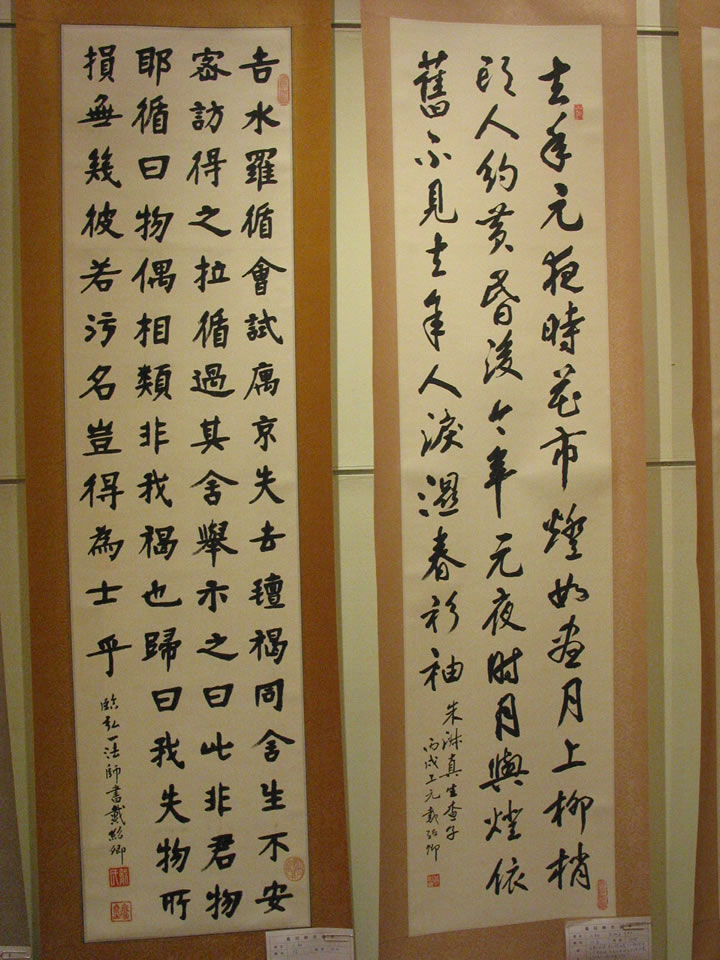 去年元夜時花市燈如畫月上柳梢
頭人約黃昏後今年元夜时月與燈依
舊不見去年人淚濕春衫袖
朱淑真生查子
丙戌上元戴紹卿
吉水羅循會試寓京失去褐同舍生不安
密訪得之拉循過其舍舉示之曰此非君物
耶循曰物偶相類非我褐也歸曰我失物所
損無幾彼若污名豈得為士乎
臨弘一法師書戴紹卿